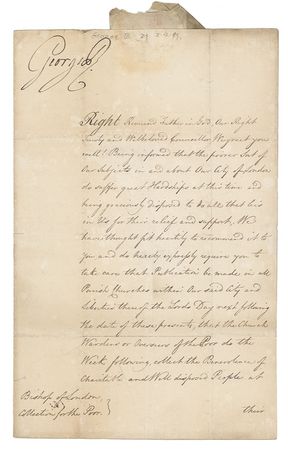 George R.
Right Reverend Father in God, Our Right
Trusty and Welbeloved Councillor, We greet you
well! Being informed that the poorer Sort of
Our Subjects in and about Our City of London
do suffer great Hardships at this time and
being graciously disposed to do all that lies
in Us for their relief and support, We
have thought fit heartily to recommend it to
You and do hereby expressly require you to
take care that Publication be made in all
Parish Churches within Our said City and
Liberties thereof the Lords Day next following
the date of these presents, that the Church
Wardens or Overseers of the Poor do the
Week following, collect the Benevolence of
Charitable and Well disposed People at
their
Bishop of London,
Collection for the Poor.